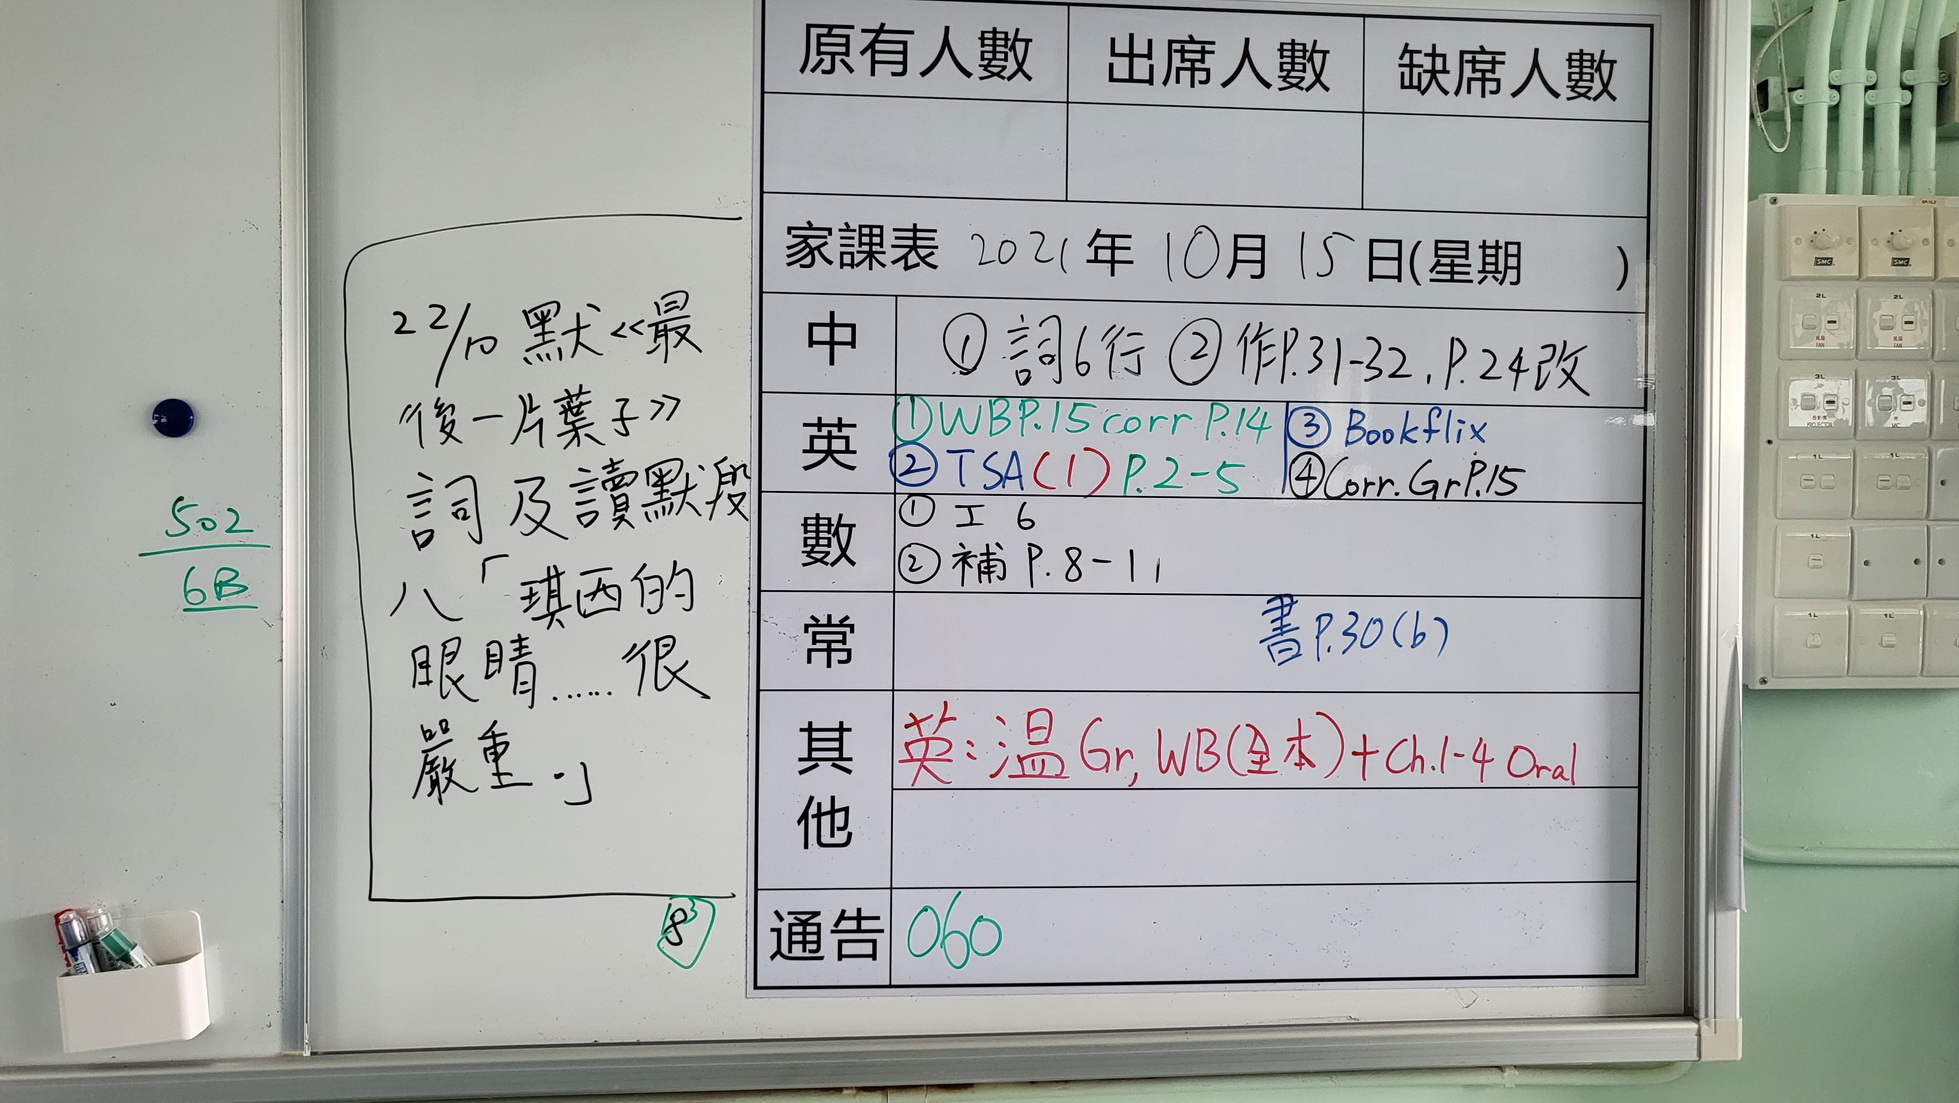 原有人數 出席人數 缺席人數
家課表 2021年 10月 15日(星期 )
中 ① 詞6行 ② 作P.31-32, P.24改
英 ① WB P.15 corr P.14 ③ Bookflix
② TSA(1) P.2-5 ④ Corr. Gr P.15
數 ① 工 6
② 補 P.8-11
常 書 P.30(b)
其他 英：温 Gr, WB(全本)+Ch.1-4 Oral
通告 060
22/10 默《最
後一片葉子》
詞及讀默段
八「琪西的
眼睛......很
嚴重。」
502
6B